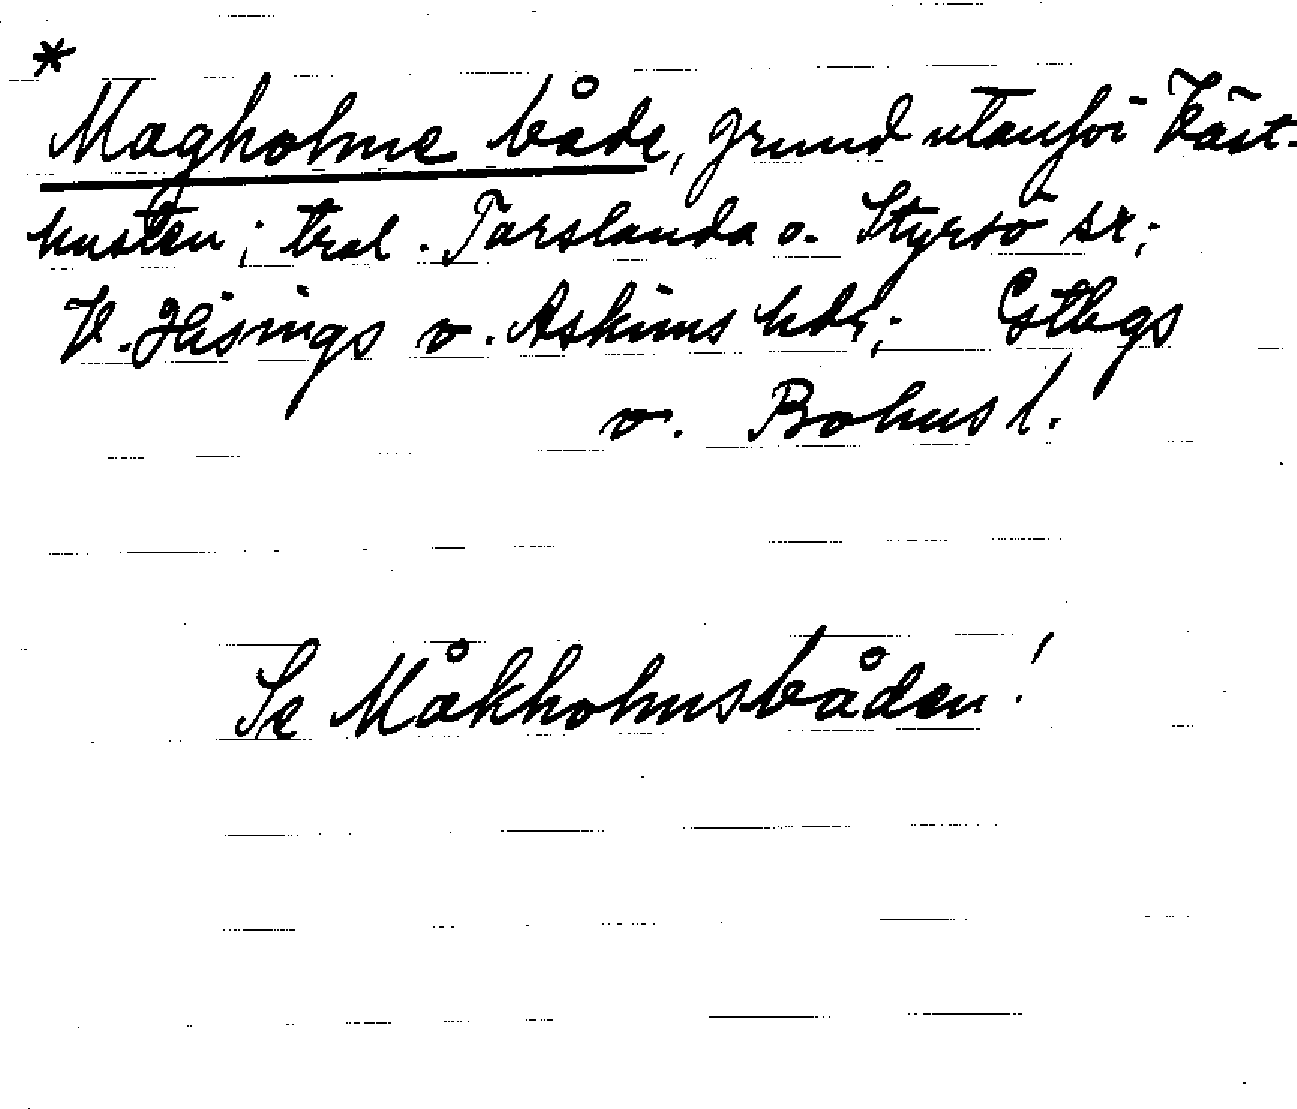 *
Magholme både, grund utanför Väst-
kusten; trol. Torslanda o. Styrsö sr;
V. Hisings o. Askims hdr; Gtbgs
o. Bohus l.
Se Måkholmsbåden!